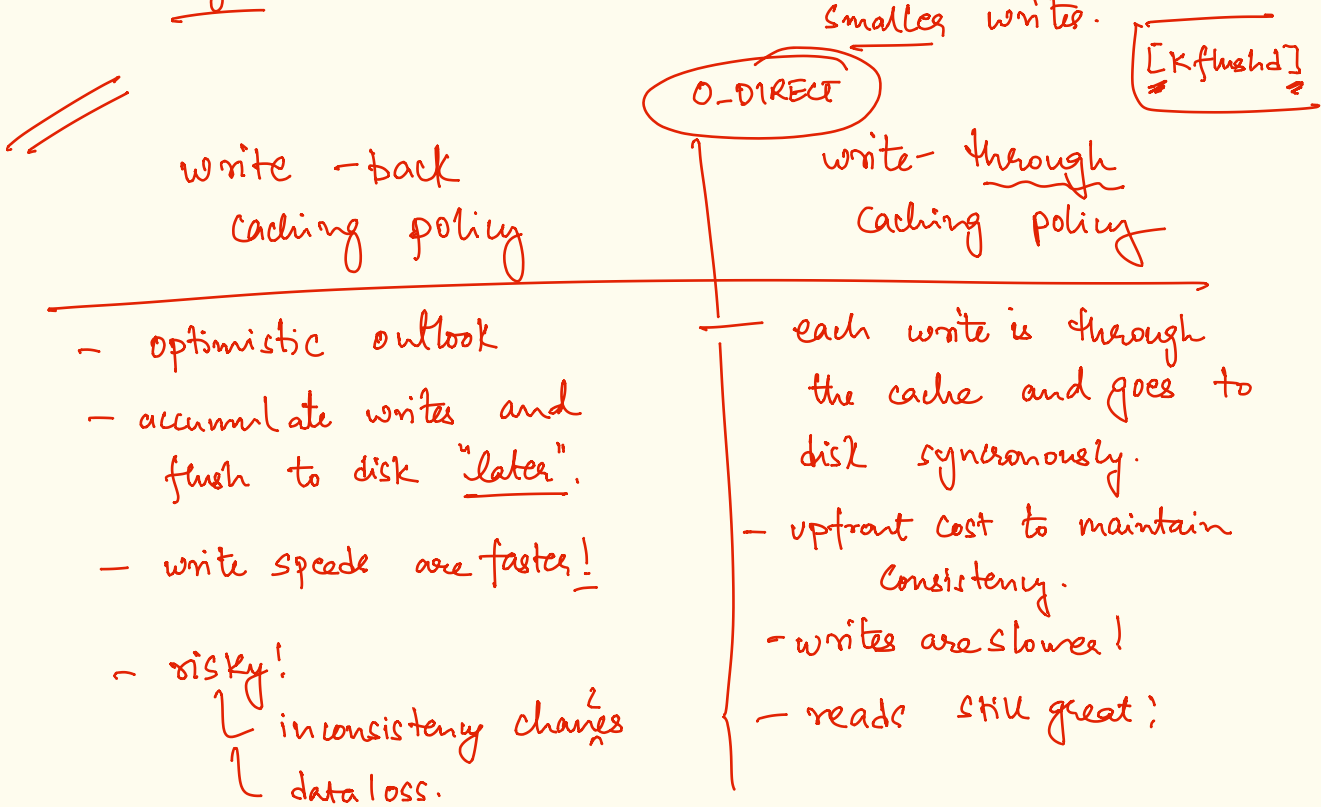 smaller writes.
[Kflushd]
O_DIRECT
write-back
caching policy
write-through
Caching policy
- optimistic outlook
- accumulate writes and
flush to disk "later".
- write speeds are faster!
- risky!
inconsistency chances
data loss.
- each write is through
the cache and goes to
disk syncronously.
- upfront cost to maintain
consistency.
- writes are slower!
- reads still great!